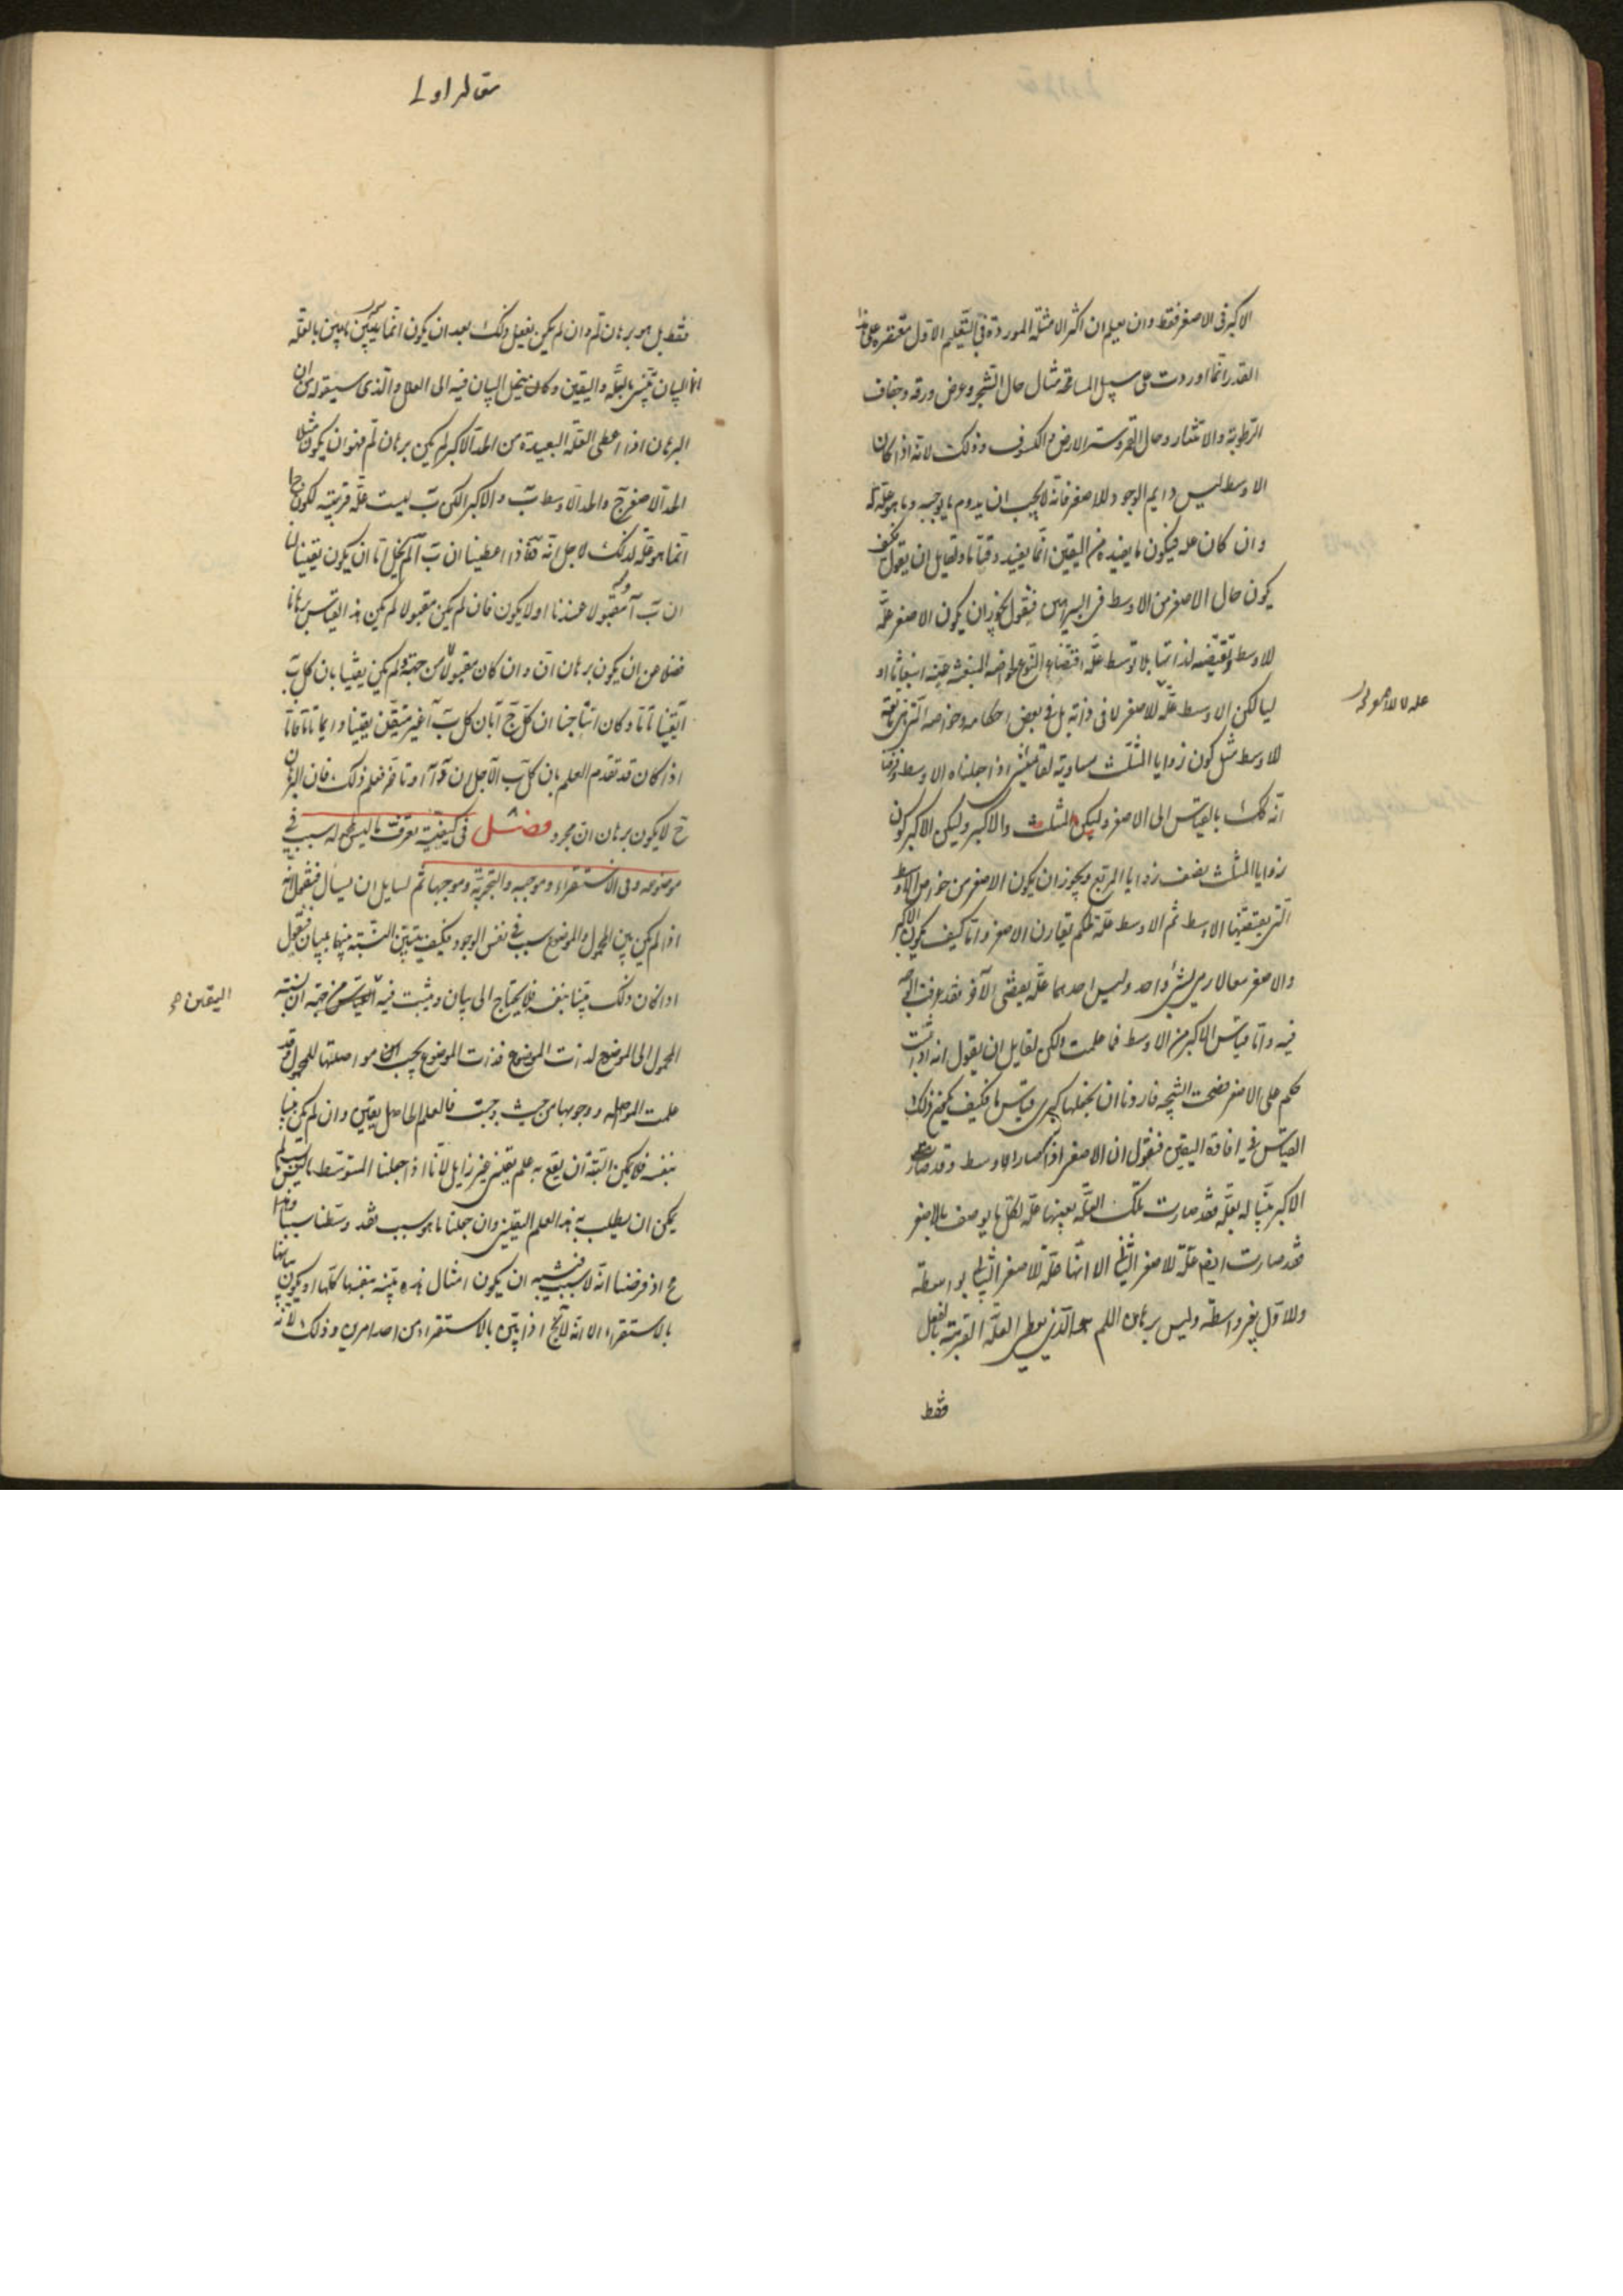 الاكبر فى الاصغر فقط وان يعلم ان اكثر الامثلة الموردة فى التعليم الاول مقتصرة على هذا
القدر انما اوردت على سبيل المسامحة مثال حال الشجر وعرض ورقه وجفاف
الرطوبة والانتثار وحال القمر وستر الارض والكسوف وذلك لانه اذا كان
الاوسط ليس دايم الوجود للاصغر فانه لا يجب ان يدوم ما يوجبه وما هو علة له
وان كان علة فيكون ما يفيده من اليقين انما يفيده وقتا ما ولقايل ان يقول كيف
يكون حال الاصغر من الاوسط فى البراهين فنقول يجوز ان يكون الاصغر علة
للاوسط وتقتضيه لذاتها بلا توسط علة اقتضاء النوع لخواصه المنبعثة عنه انبعاثا او
ليا لكن الاوسط علة للاصغر لا فى ذاته بل فى بعض احكامه وخواصه التى هى تابعة
علة للاصغر لا
للاوسط مثل كون زوايا المثلث مساوية لقائمتين اذا جعلناه الاوسط وفرضنا
انه كك بالقياس الى الاصغر وليكن المثلث والاكبر وليكن الاكبر كون
زوايا المثلث نصف زوايا المربع ويجوز ان يكون الاصغر من خواص الاوسط
التى يقتضيها الاوسط ثم الاوسط علة لحكم يقارن الاصغر واما كيف يكون الاكبر
والاصغر معا لازمى شىء واحد وليس احدهما علة يقتضى الآخر فقد عرفت الوجه
فيه واما قياس الاكبر من الاوسط فما علمت ولكن لقايل ان يقول انه اذا ثبت
حكم على الاصغر فصحت النتيجة فاردنا ان نجعلها كبرى قياس ما فكيف يكون ذلك
القياس فى افادة اليقين فنقول ان الاصغر اذا صار الاوسط وقد صار
الاكبر بينا له بعلة فقد صارت تلك العلة بعينها علة لكل ما يوصف بالاصغر
فقد صارت ايضا علة للاصغر الثانى الا انها علة للاصغر الثانى بواسطة
وللاول بغير واسطة وليس برهان اللم هو الذى يعطى العلة القريبة بالفعل
فقط
مقاله اولى
فقط بل هو برهان لم وان لم يكن يفعل ذلك بعد ان يكون انما يبين ما يبين بالعلة
انما البيان بالعلة واليقين وكان ينحل البيان فيه الى العلل والذى سيقوله ان
البرهان اذا اعطى العلة البعيدة من الحد الاكبر لم يكن برهان لم فهو ان يكون مثلا
الحد الاصغر ج والحد الاوسط ب والاكبر ا لكن ب ليست علة قريبة لكون ج ا
انما هو علة لذلك لاجل انه فاذا اعطينا ان ب ا لم يخل اما ان يكون يقينا لنا
ان ب ا مقبولا عندنا او لا يكون فان لم يكن مقبولا لم يكن هذا القياس برهانا
فضلا عن ان يكون برهان ان وان كان مقبولا من جهة ولم يكن يقينا بان كل ب
ا يقينا تاما وكان انتاجنا ان كل ج ا بان كل ب ا غير متيقن يقينا دايما تاما فاما
اذا كان قد تقدم العلم بان كل ب ا لاجل ان او تاخر فعلم ذلك فان البرهان
ح لا يكون برهان ان مجرد فصل فى كيفية تعرف ما ليس لمحموله سبب فى
موضوعه وفى الاستقراء وموجبه والتجربة وموجبها ثم لسايل ان يسأل فيقول انه
اذا لم يكن بين المحمول والموضوع سبب فى نفس الوجود فكيف يتبين النسبة بينهما ببيان فنقول
اذا كان ذلك بينا بنفسه فلا يحتاج الى بيان ويثبت فيه من جهة ان نسبة
اليقين صح
المحمول الى الموضوع لذات الموضوع فذات الموضوع يجب مواصلتها للمحمول وقد
علمت المواصلة ووجوبها من حيث وجبت فالعلم الحاصل يقين وان لم يكن بينا
بنفسه فلا يمكن البتة ان يقع به علم يقينى غير زايل لانا اذا جعلنا المتوسط ما ليس بسبب لم
يمكن ان يطلب به هذا العلم اليقينى وان جعلنا ما هو سبب فقد وسطنا سببا وهذا
مح اذ فرضنا انه لا سبب فيشبه ان يكون امثال هذه بينة بنفسها كلها او يكون بيانها
بالاستقراء الا انه لا يخ اذا بين بالاستقراء من احد امرين وذلك لانه